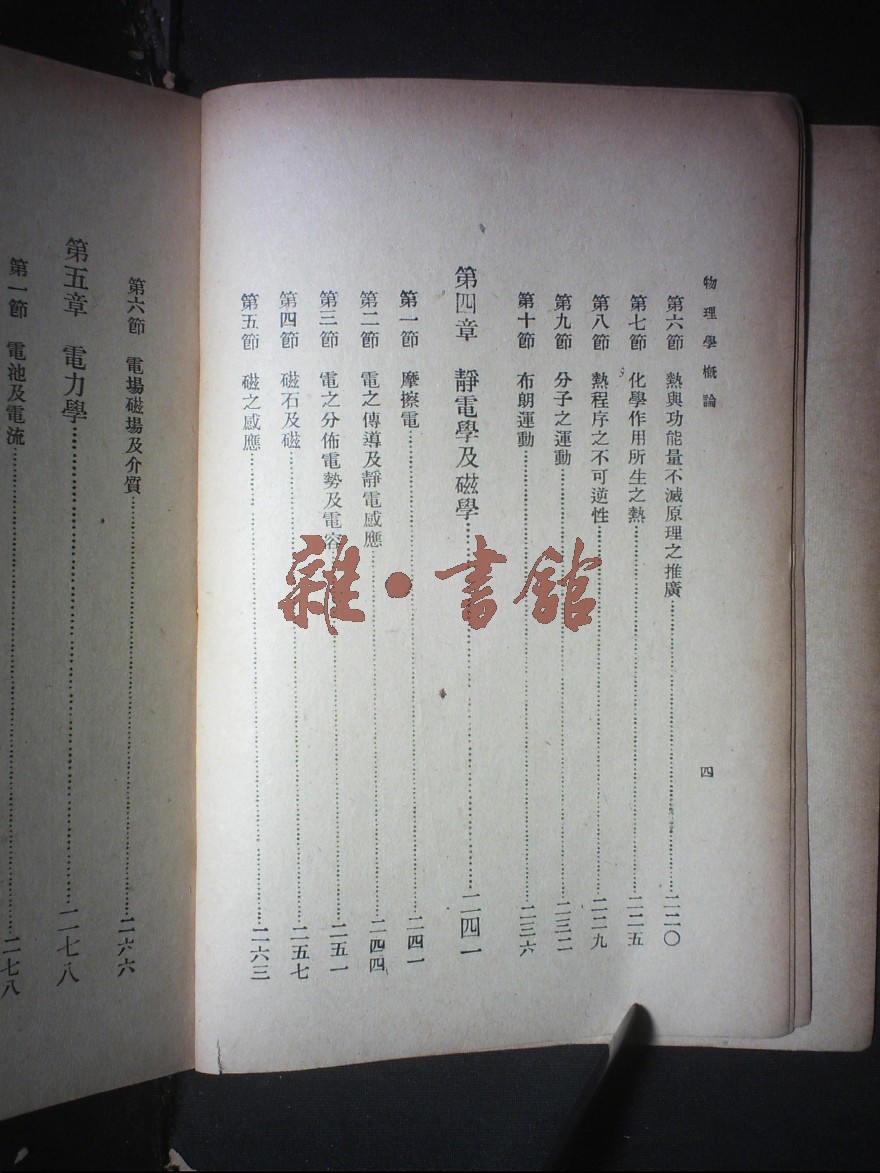 物理學概論
四
第六節 熱與功能量不滅原理之推廣……二二〇
第七節 化學作用所生之熱……二二五
第八節 熱程序之不可逆性……二二九
第九節 分子之運動……二三二
第十節 布朗運動……二三六
第四章 靜電學及磁學……二四一
第一節 摩擦電……二四一
第二節 電之傳導及靜電感應……二四四
第三節 電之分佈電勢及電容……二五一
第四節 磁石及磁……二五七
第五節 磁之感應……二六三
第六節 電場磁場及介質……二六六
第五章 電力學……二七八
第一節 電池及電流……二七八
雜·書館